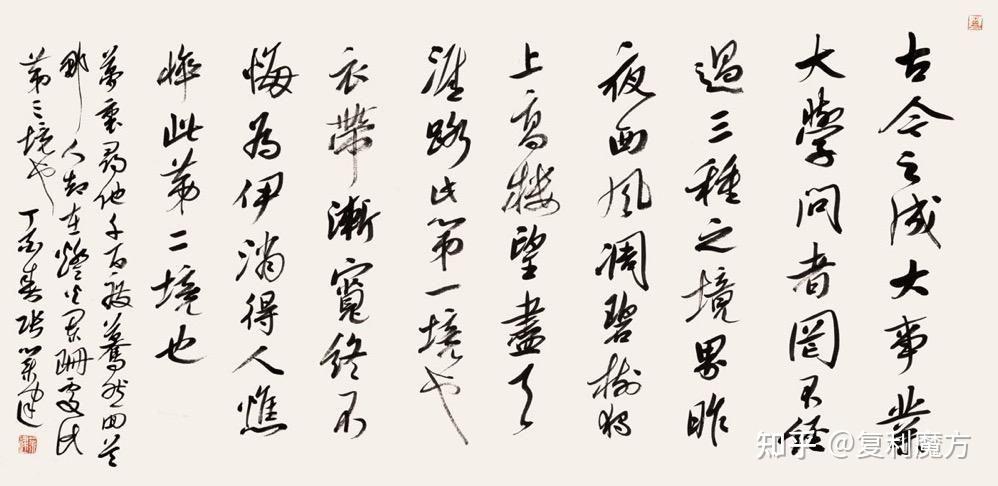 古今之成大事業
大學問者罔不經
過三種之境界昨
夜西風凋碧樹獨
上高樓望盡天
涯路此第一境也
衣帶漸寬終不
悔為伊消得人憔
悴此第二境也
衆裏尋他千百度驀然回首
那人却在燈火闌珊處此
第三境也 丁酉春張
知乎 @复利魔方